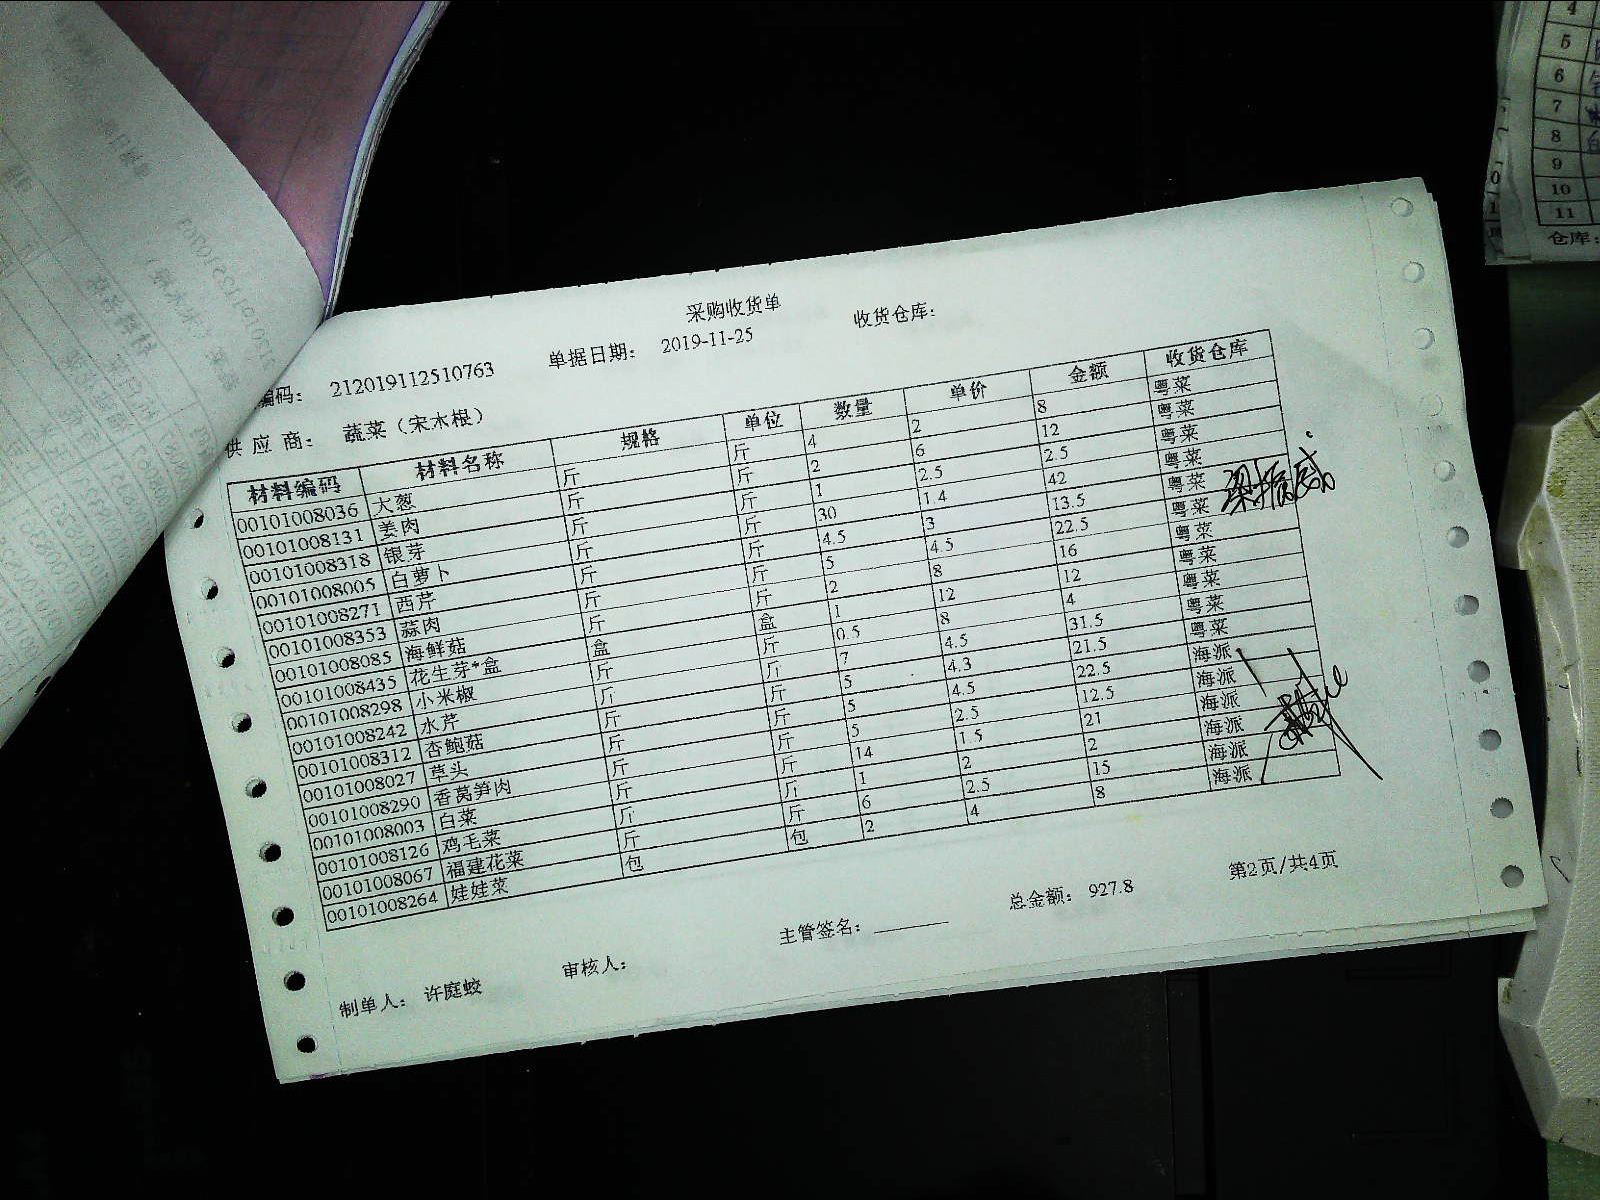 采购收货单
编码： 212019112510763 单据日期： 2019-11-25 收货仓库：
供 应 商： 蔬菜（宋木根）
材料编码 材料名称 规格 单位 数量 单价 金额 收货仓库
00101008036 大葱 斤 斤 4 2 8 粤菜
00101008131 姜肉 斤 斤 2 6 12 粤菜
00101008318 银芽 斤 斤 1 2.5 2.5 粤菜
00101008005 白萝卜 斤 斤 30 1.4 42 粤菜
00101008271 西芹 斤 斤 4.5 3 13.5 粤菜
00101008353 蒜肉 斤 斤 5 4.5 22.5 粤菜
00101008085 海鲜菇 斤 斤 2 8 16 粤菜
00101008435 花生芽*盒 盒 盒 1 12 12 粤菜
00101008298 小米椒 斤 斤 0.5 8 4 粤菜
00101008242 水芹 斤 斤 7 4.5 31.5 粤菜
00101008312 杏鲍菇 斤 斤 5 4.3 21.5 粤菜
00101008027 草头 斤 斤 5 4.5 22.5 海派
00101008290 香莴笋肉 斤 斤 5 2.5 12.5 海派
00101008003 白菜 斤 斤 14 1.5 21 海派
00101008126 鸡毛菜 斤 斤 1 2 2 海派
00101008067 福建花菜 斤 斤 6 2.5 15 海派
00101008264 娃娃菜 包 包 2 4 8 海派
制单人： 许庭蛟 审核人： 主管签名： 总金额： 927.8 第2页/共4页
4
5
6
7
8
9
10
11
仓库：